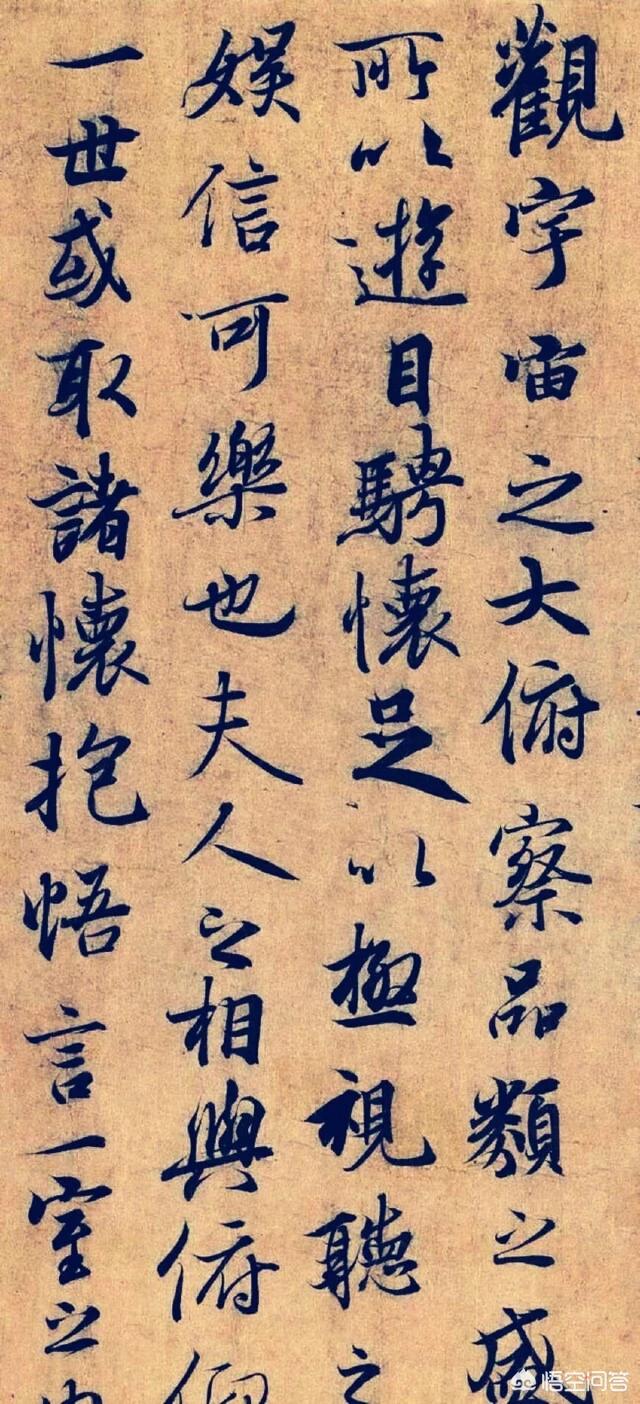 觀宇宙之大俯察品類之盛
所以遊目騁懷足以極視聽之
娛信可樂也夫人之相與俯仰
一世或取諸懷抱悟言一室之內
悟空问答